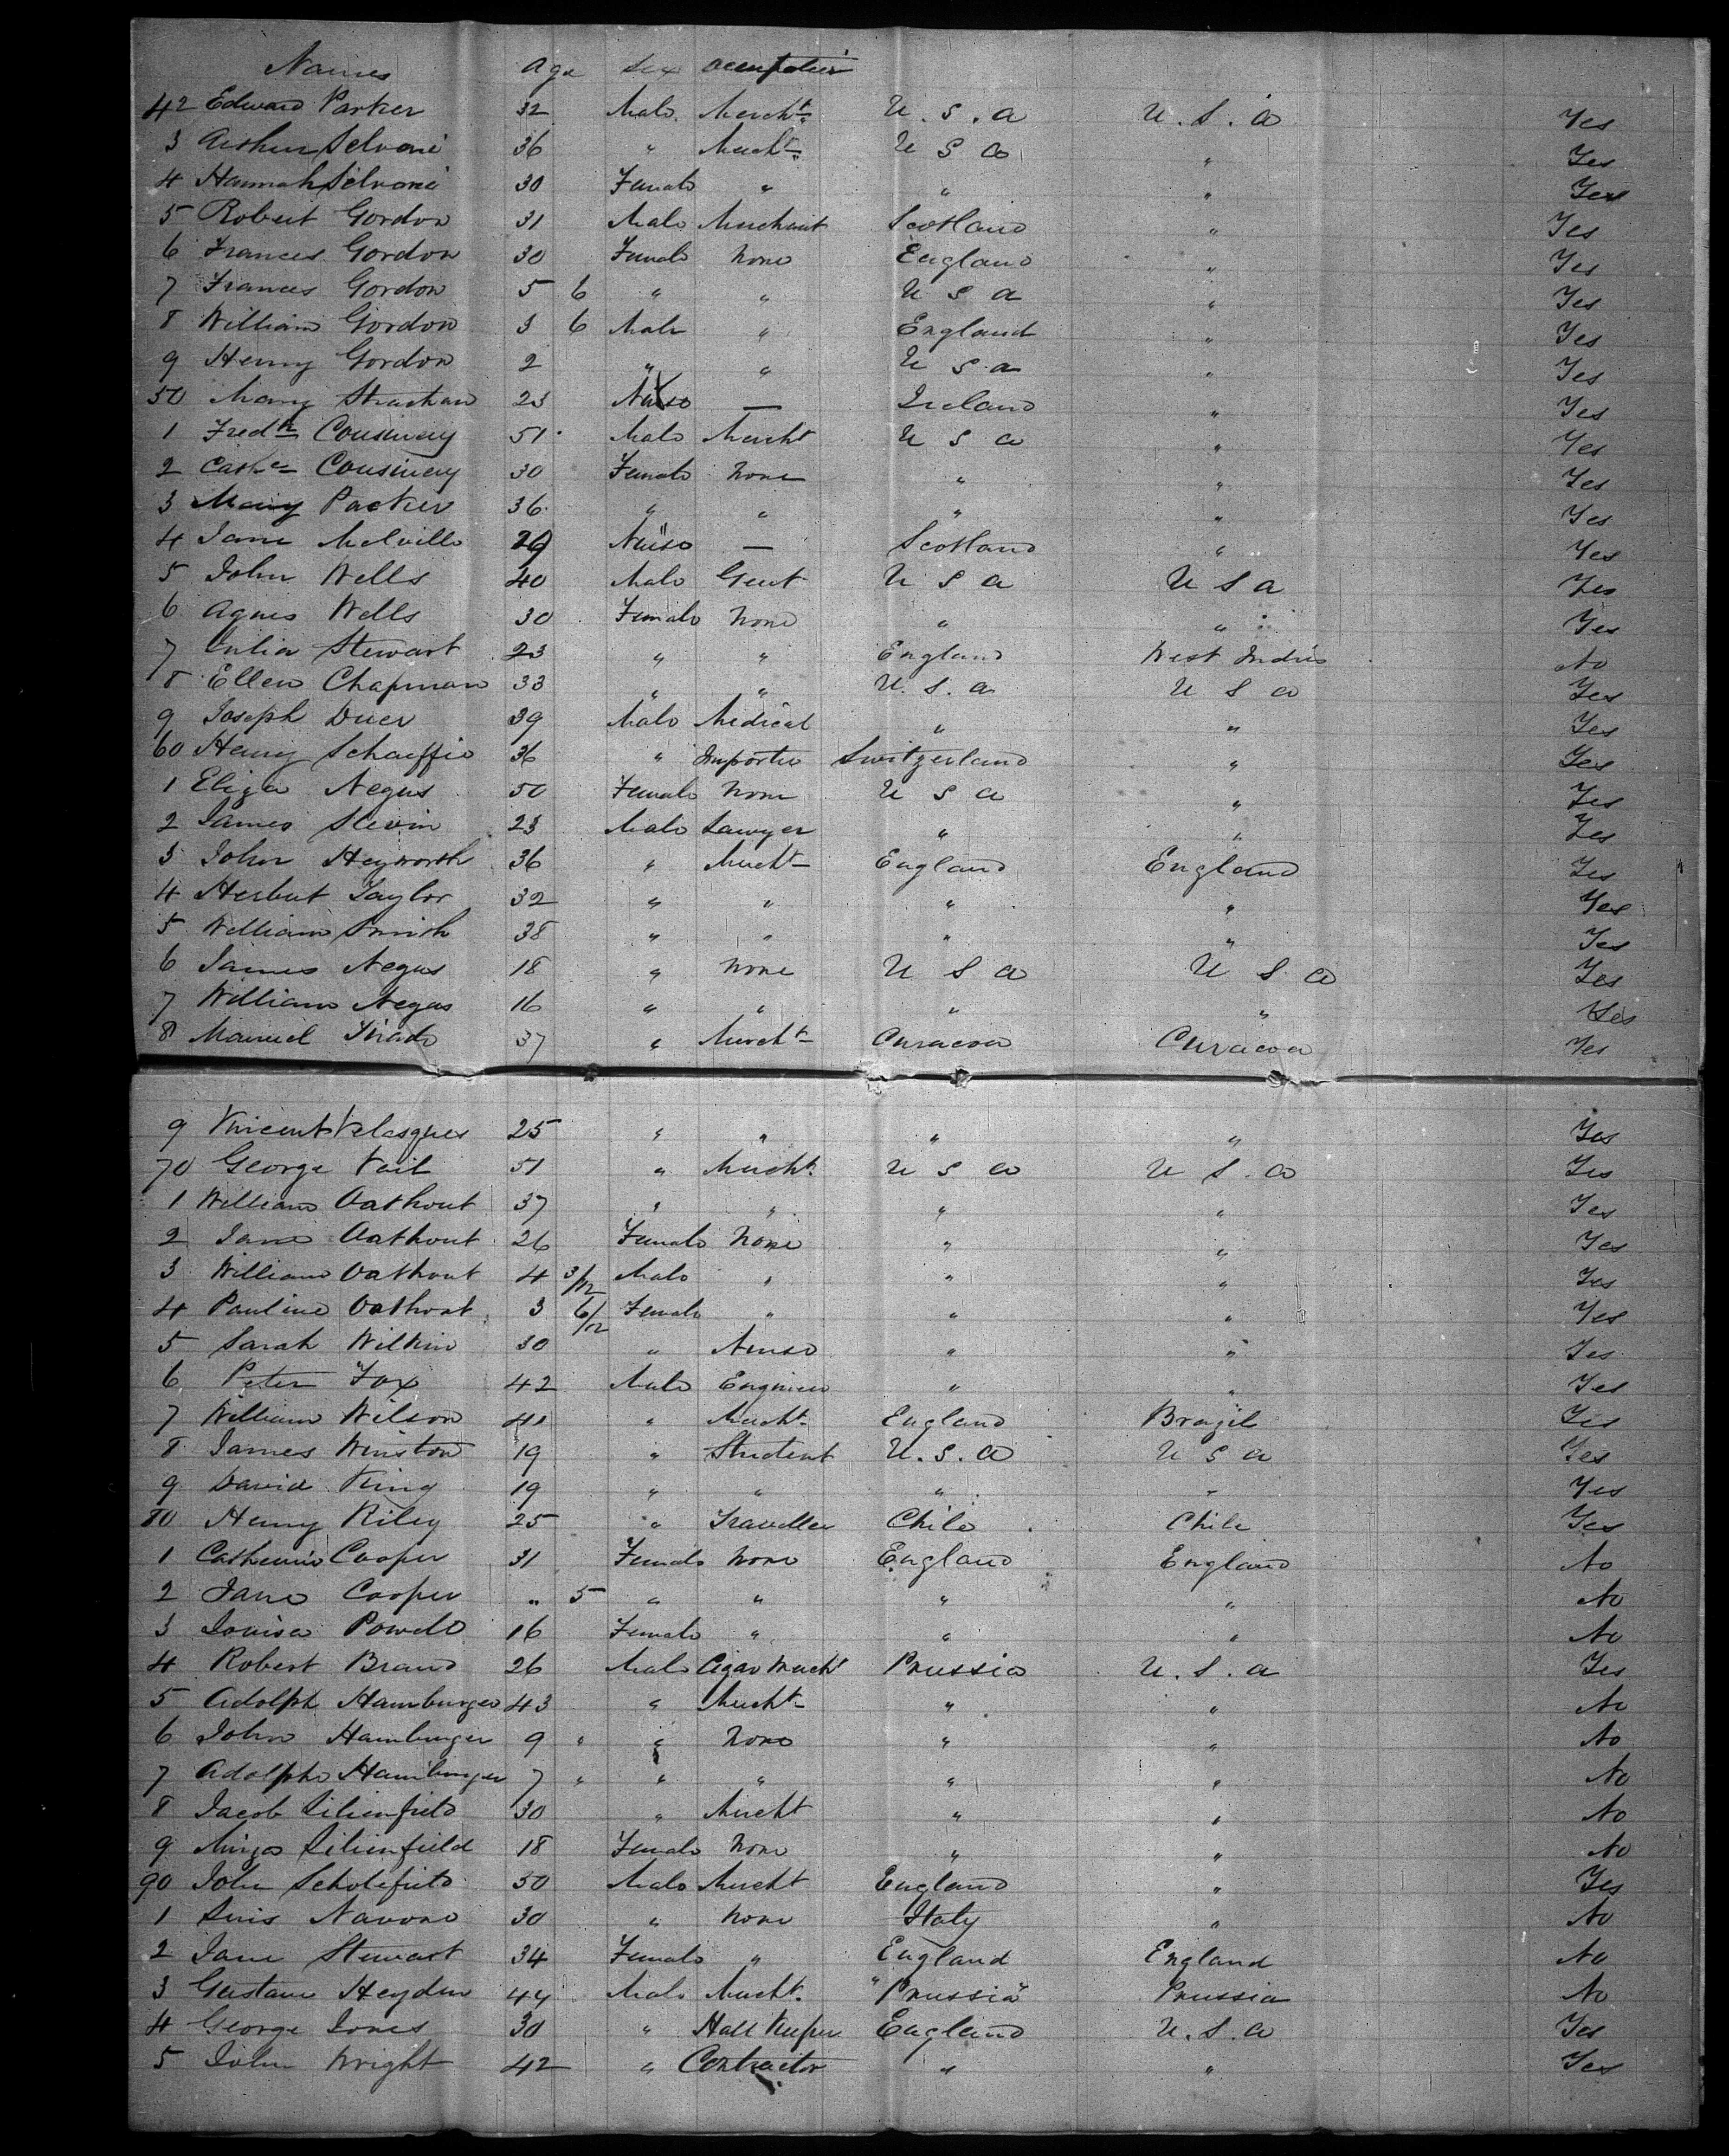 Names Age Sex Occupation
42 Edward Parker 32 Male Mercht. U.S.A U.S.A Yes
3 Arthur Selvoni 36 " Mercht. U S A " Yes
4 Hannah Selvoni 30 Female " " " Yes
5 Robert Gordon 31 Male Merchant Scotland " Yes
6 Frances Gordon 30 Female None England " Yes
7 Frances Gordon 5 6 " " U S A " Yes
8 William Gordon 3 6 Male " England " Yes
9 Henry Gordon 2 " " U S A " Yes
50 Mary Strachan 23 Nurse — Ireland " Yes
1 Fredk Cousinery 51 Male Mercht U S A " Yes
2 Cathe Cousinery 30 Female None " " Yes
3 Mary Packer 36 " " " " Yes
4 Jane Melville 29 Nurse — Scotland " Yes
5 John Wells 40 Male Gent U S A U S A Yes
6 Agnes Wells 30 Female None " " Yes
7 Julia Stewart 23 " " England West Indies No
8 Ellen Chapman 33 " " U.S.A U S A Yes
9 Joseph Duer 39 Male Medical " " Yes
60 Henry Schaeffie 36 " Importer Switzerland " Yes
1 Eliza Negus 50 Female None U S A " Yes
2 James Slevin 23 Male Lawyer " " Yes
3 John Heyworth 36 " Mercht England England Yes
4 Herbert Taylor 32 " " " " Yes
5 William Smith 38 " " " " Yes
6 James Negus 18 " None U S A U S A Yes
7 William Negus 16 " " " " Yes
8 Manuel 37 " Mercht Curacoa Curacoa Yes
9 Vincent Velasques 25 " " " " Yes
70 George Vail 51 " Mercht. U S A U S. A Yes
1 William Oathout 37 " " " " Yes
2 Jane Oathout 26 Female None " " Yes
3 William Oathout 4 3/12 Male " " " Yes
4 Pauline Oathout 3 6/12 Female " " " Yes
5 Sarah Wilkin 30 " Nurse " " Yes
6 Peter Fox 42 Male Engineer " " Yes
7 William Wilson 41 " Mercht. England Brazil Yes
8 James Winston 19 " Student U.S.A U S A Yes
9 David King 19 " " " " Yes
80 Henry Riley 25 " Traveller Chile Chile Yes
1 Catherine Cooper 31 Female None England England No
2 Jane Cooper " 5 " " " " No
3 Louisa Powell 16 Female " " " No
4 Robert Brand 26 Male Cigar Mercht Prussia U.S.A Yes
5 Adolph Hamburger 43 " Mercht " " No
6 John Hamburger 9 " " None " " No
7 Adolphe Hamburger 7 " " " " " No
8 Jacob Lilienfield 30 " Mercht " " No
9 Lilienfield 18 Female None " " No
90 John Scholefield 30 Male Mercht England " Yes
1 Luis Navone 30 " None Italy " No
2 Jane Stewart 34 Female " England England No
3 Gustave Heyden 44 Male Mercht. "Prussia" Prussia No
4 George Jones 30 " Hall Keeper England U.S.A Yes
5 John Wright 42 " Contractor " " Yes